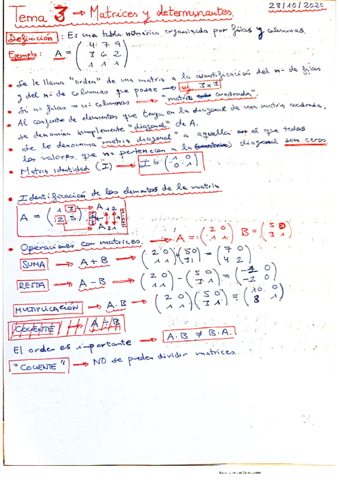 28/10/2020
Tema 3 → Matrices y determinantes
Definición: Es una tabla numérica organizada por filas y columnas.
Ejemplo: A = ( 4 7 9
3 6 2
1 1 1 )
• Se le llama "orden" de una matriz a la cuantificación del nº de filas
y del nº de columnas que posee → ej 3x3
• Si nº filas = nº columnas → "matriz cuadrada".
• Al conjunto de elementos que tenga en la diagonal de una matriz cuadrada,
se denomina simplemente "diagonal" de A.
• Se le denomina "matriz diagonal" a aquella en el que todos
los valores, que no pertenezcan a la diagonal son ceros
• Matriz identidad (I) → I = ( 1 0
0 1 )
• Identificación de los elementos de la matriz
A =
• Operaciones con matrices. → A = ( 2 0
1 1 ) B = ( 5 0
3 1 )
SUMA → A + B → ( 2 0
1 1 ) ( 5 0
3 1 ) = ( 7 0
4 2 )
RESTA → A - B → ( 2 0
1 1 ) - ( 5 0
3 1 ) = ( -3 0
-2 0 )
MULTIPLICACIÓN → A · B → ( 2 0
1 1 ) ( 5 0
3 1 ) = ( 10 0
8 1 )
COCIENTE
El orden es importante → A · B ≠ B · A.
"COCIENTE" → NO se pueden dividir matrices.